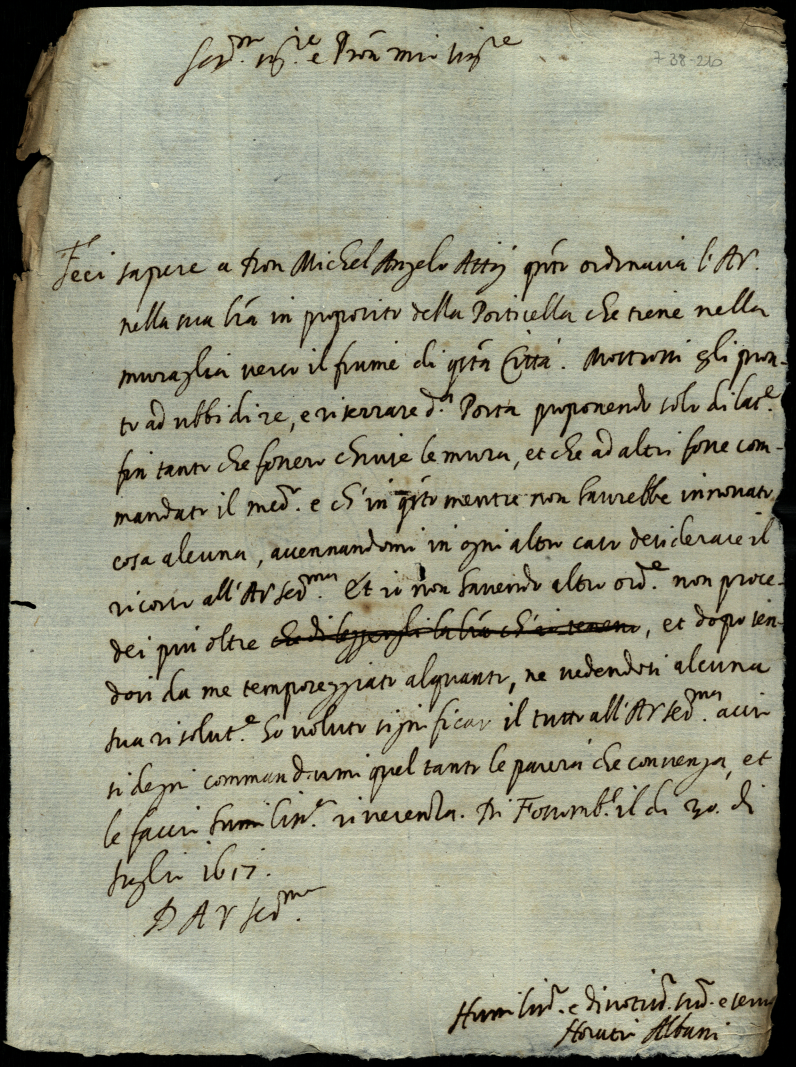 Ser.mo sig.re e Prōn mio sing.re
738-210
Feci sapere a Don Michel Angelo Attij qṫo ordinava l'AV.
nella sua lr̃a in proposito della Porticella che tiene nella
muraglia verso il fiume di qsta Città. Mostrossi gli pron-
to ad ubbidire, e riserrare d.a Porta proponendo solo di lat.e
fin tanto che fossero chiuse le mura, et che ad altri fosse com-
mandato il med.o e ch'in qsto mentre non havrebbe innovato
cosa alcuna, accennandomi in ogni altro caso desiderare il
ricorso all'AV ser.ma Et io non havendo altro ord.e non proce-
dei più oltre che di leggergli la lr̃a ch'io tenevo, et dopo sen-
dosi da me temporeggiato alquanto, ne vedendosi alcuna
sua risolut.e ho voluto significar il tutto all'AV ser.ma acciò
si degni commandarmi quel tanto le parerà che convenga, et
le faccio humilis.a riverenza. Di Fossomb.e il di 30. di
luglio 1617.
D A V ser.ma
Humiliss.o e divotiss.o sud.o e servo
Horatio Albani